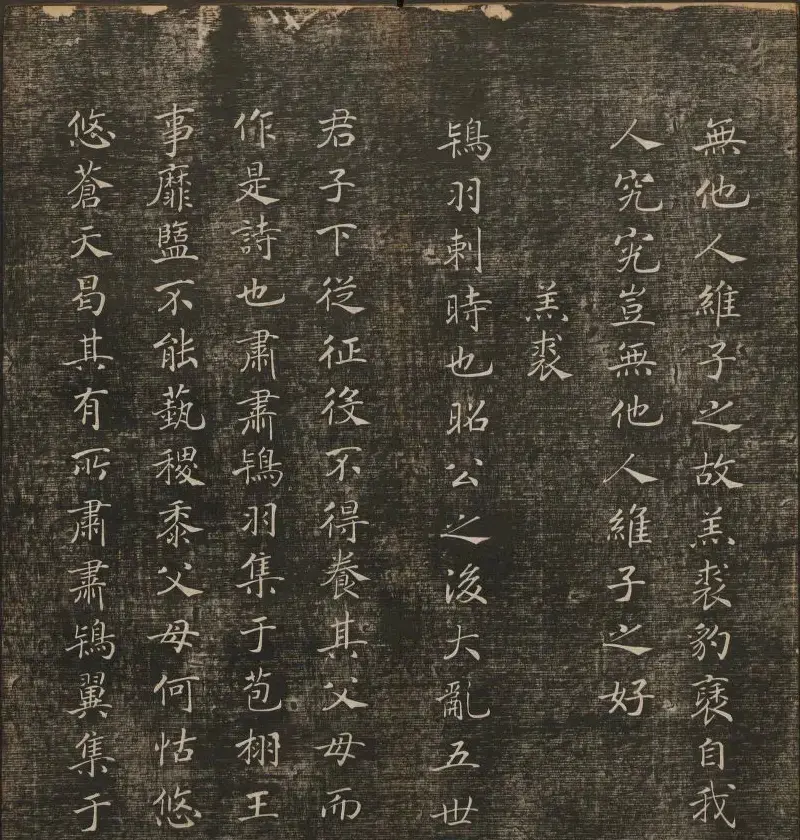 無他人維子之故羔裘豹褎自我
人究究豈無他人維子之好
羔裘
鴇羽刺時也昭公之後大亂五世
君子下從征役不得養其父母而
作是詩也肅肅鴇羽集于苞栩王
事靡盬不能蓺稷黍父母何怙悠
悠蒼天曷其有所肅肅鴇翼集于